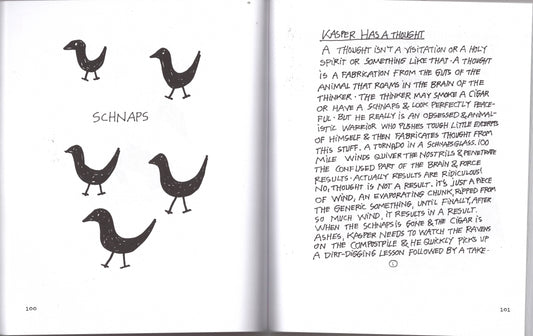 SCHNAPS
100
KASPER HAS A THOUGHT
A THOUGHT ISN'T A VISITATION OR A HOLY
SPIRIT OR SOMETHING LIKE THAT. A THOUGHT
IS A FABRICATION FROM THE GUTS OF THE
ANIMAL THAT ROAMS IN THE BRAIN OF THE
THINKER. THE THINKER MAY SMOKE A CIGAR
OR HAVE A SCHNAPS & LOOK PERFECTLY PEACE-
FUL. BUT HE REALLY IS AN OBSESSED & ANIMAL-
ISTIC WARRIOR WHO PUSHES TOUGH LITTLE EXCERPTS
OF HIMSELF & THEN FABRICATES THOUGHT FROM
THIS STUFF. A TORNADO IN A SCHNAPSGLASS. 100
MILE WINDS QUIVER THE NOSTRILS & PENETRATE
THE CONFUSED PART OF THE BRAIN & FORCE
RESULTS. ACTUALLY RESULTS ARE RIDICULOUS!
NO, THOUGHT IS NOT A RESULT. IT'S JUST A PIECE
OF WIND, AN EVAPORATING CHUNK, RIPPED FROM
THE GENERIC SOMETHING, UNTIL FINALLY, AFTER
SO MUCH WIND, IT RESULTS IN A RESULT.
WHEN THE SCHNAPS IS GONE & THE CIGAR IS
ASHES, KASPER NEEDS TO WATCH THE RAVENS
ON THE COMPOSTPILE & HE QUICKLY PICKS UP
A DIRT-DIGGING LESSON FOLLOWED BY A TAKE-
101